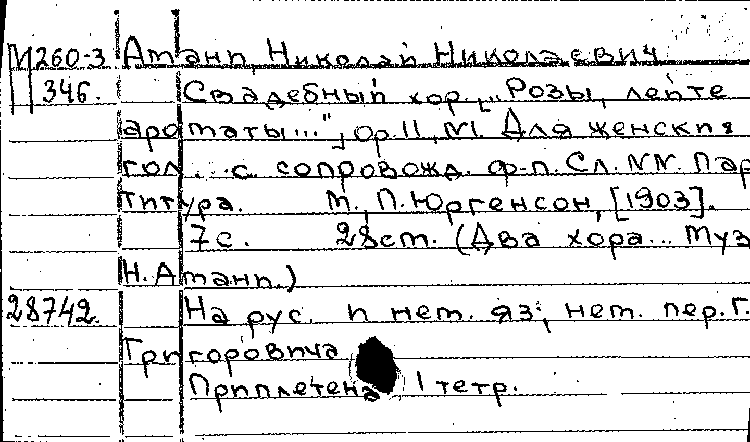 М260-3 Атанп, Николай Николаевич
346. Свадебный хор ["Розы, лейте
ароматы..."], Ор.11, N1. Для женских
гол... с сопровожд. ф-п. Сл. NN. Пар
титура. М., П. Юргенсон, [1903].
7с. 28см. (Два хора... Муз
Н. Атанп.)
28742. На рус. и нем. яз; нем. пер. Г.
Григоровича
Приплетена 1 тетр.